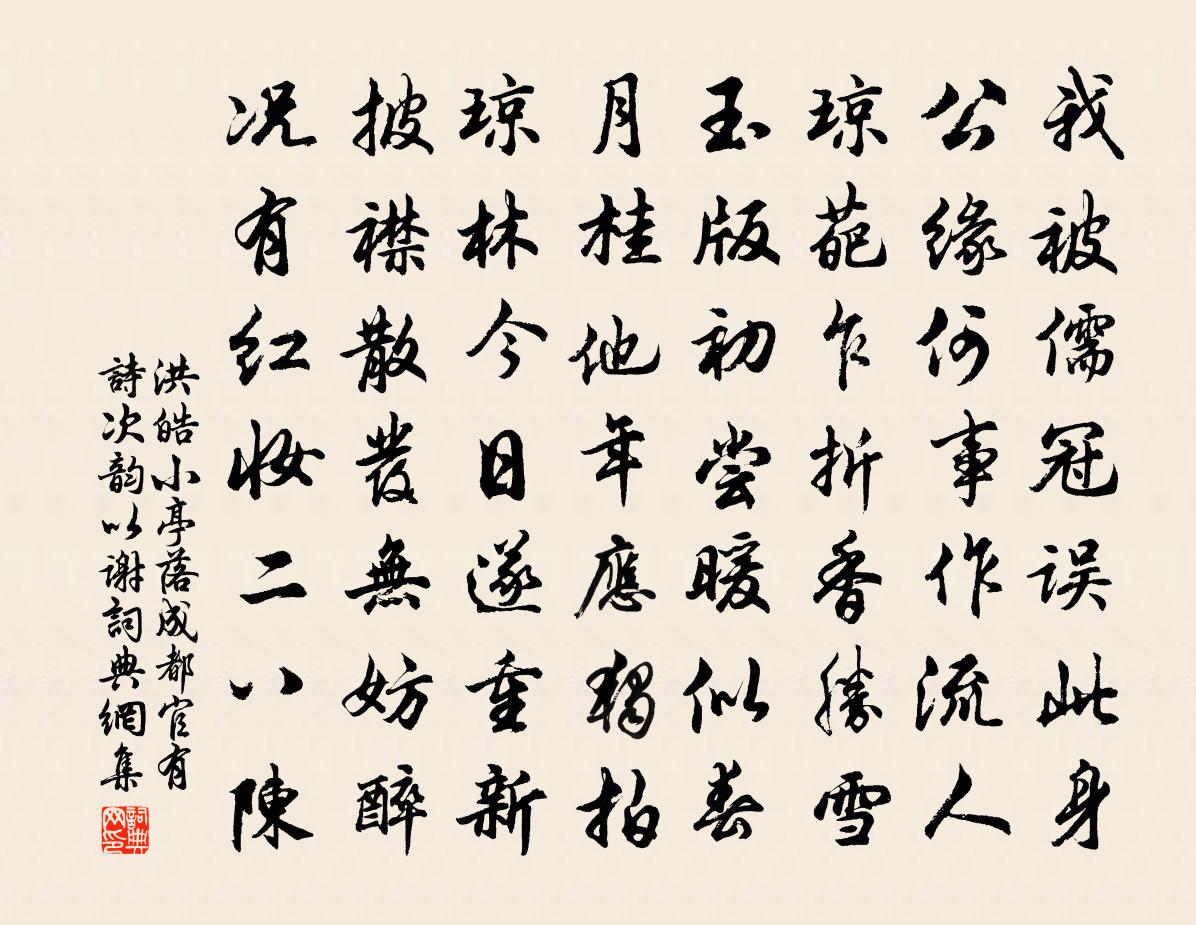 我被儒冠误此身
公缘何事作流人
琼葩乍折香勝雪
玉版初尝暖似春
月桂他年應獨拍
琼林今日遂重新
披襟散發無妨醉
况有红妝二八陳
洪皓小亭落成都官有
詩次韵以谢詞典網集
詞典网印